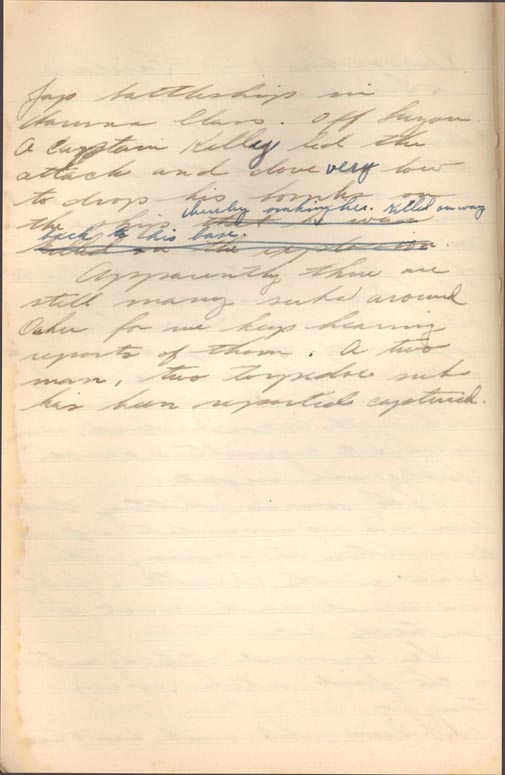 Jap battleship in
Haruna Class. Off Luzon
A Captain Kelley led the
attack and dove very low
to drop his bombs on
thereby sinking her. Killed on way
the ship
back to his base.
killed in the explosion.
Apparently there are
still many subs around
Oahu for we keep hearing
reports of them. A two
man, two torpedoe sub
has been reported captured.